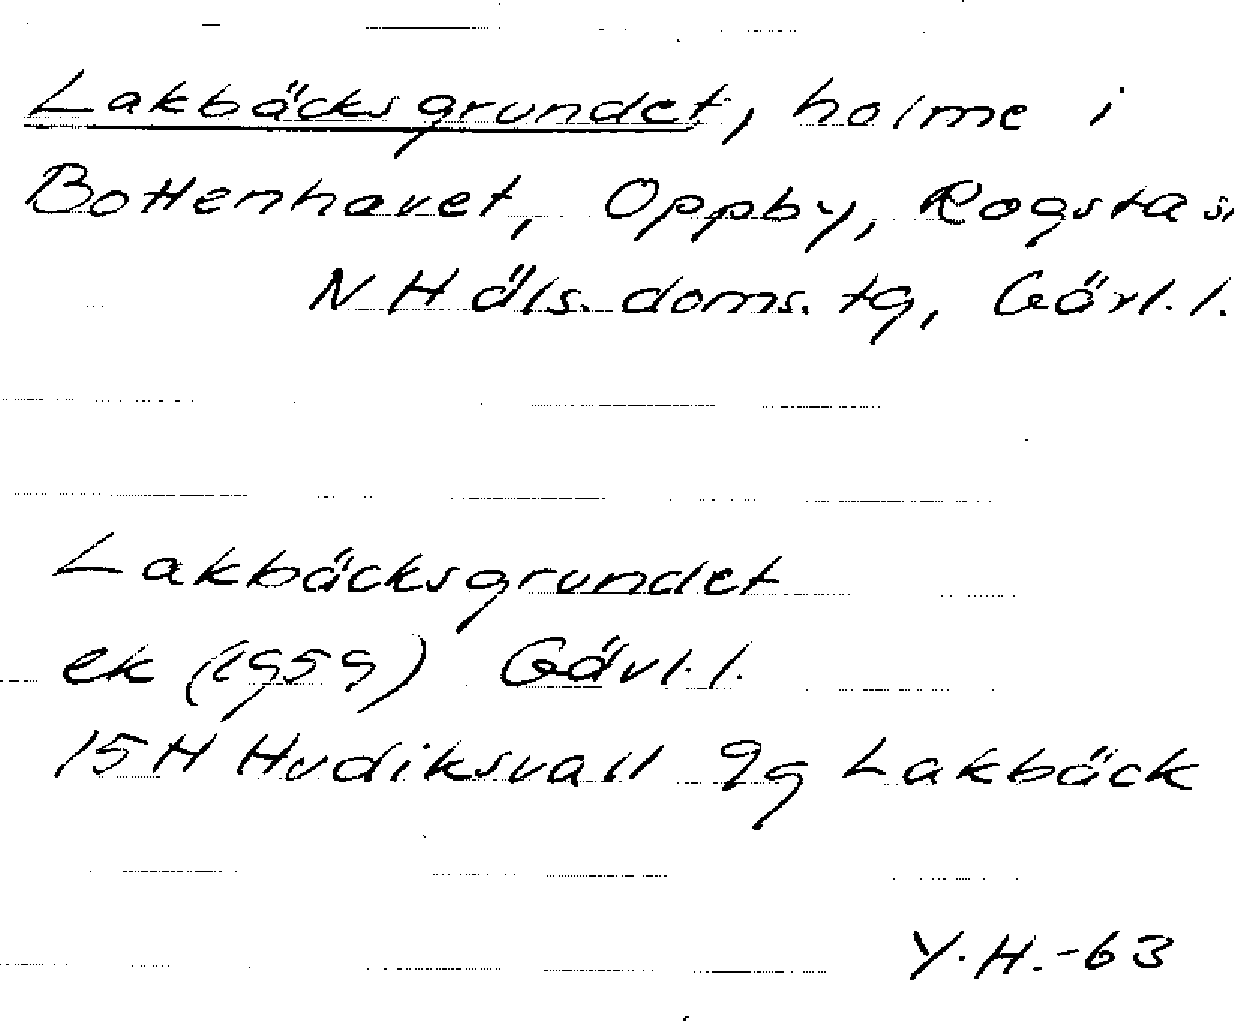 Lakbäcksgrundet, holme i
Bottenhavet, Oppby, Rogsta sn
N Häls. doms. tg, Gävl. l.
Lakbäcksgrundet
ek (1959) Gävl. l.
15H Hudiksvall 9g Lakbäck
Y.H.-63